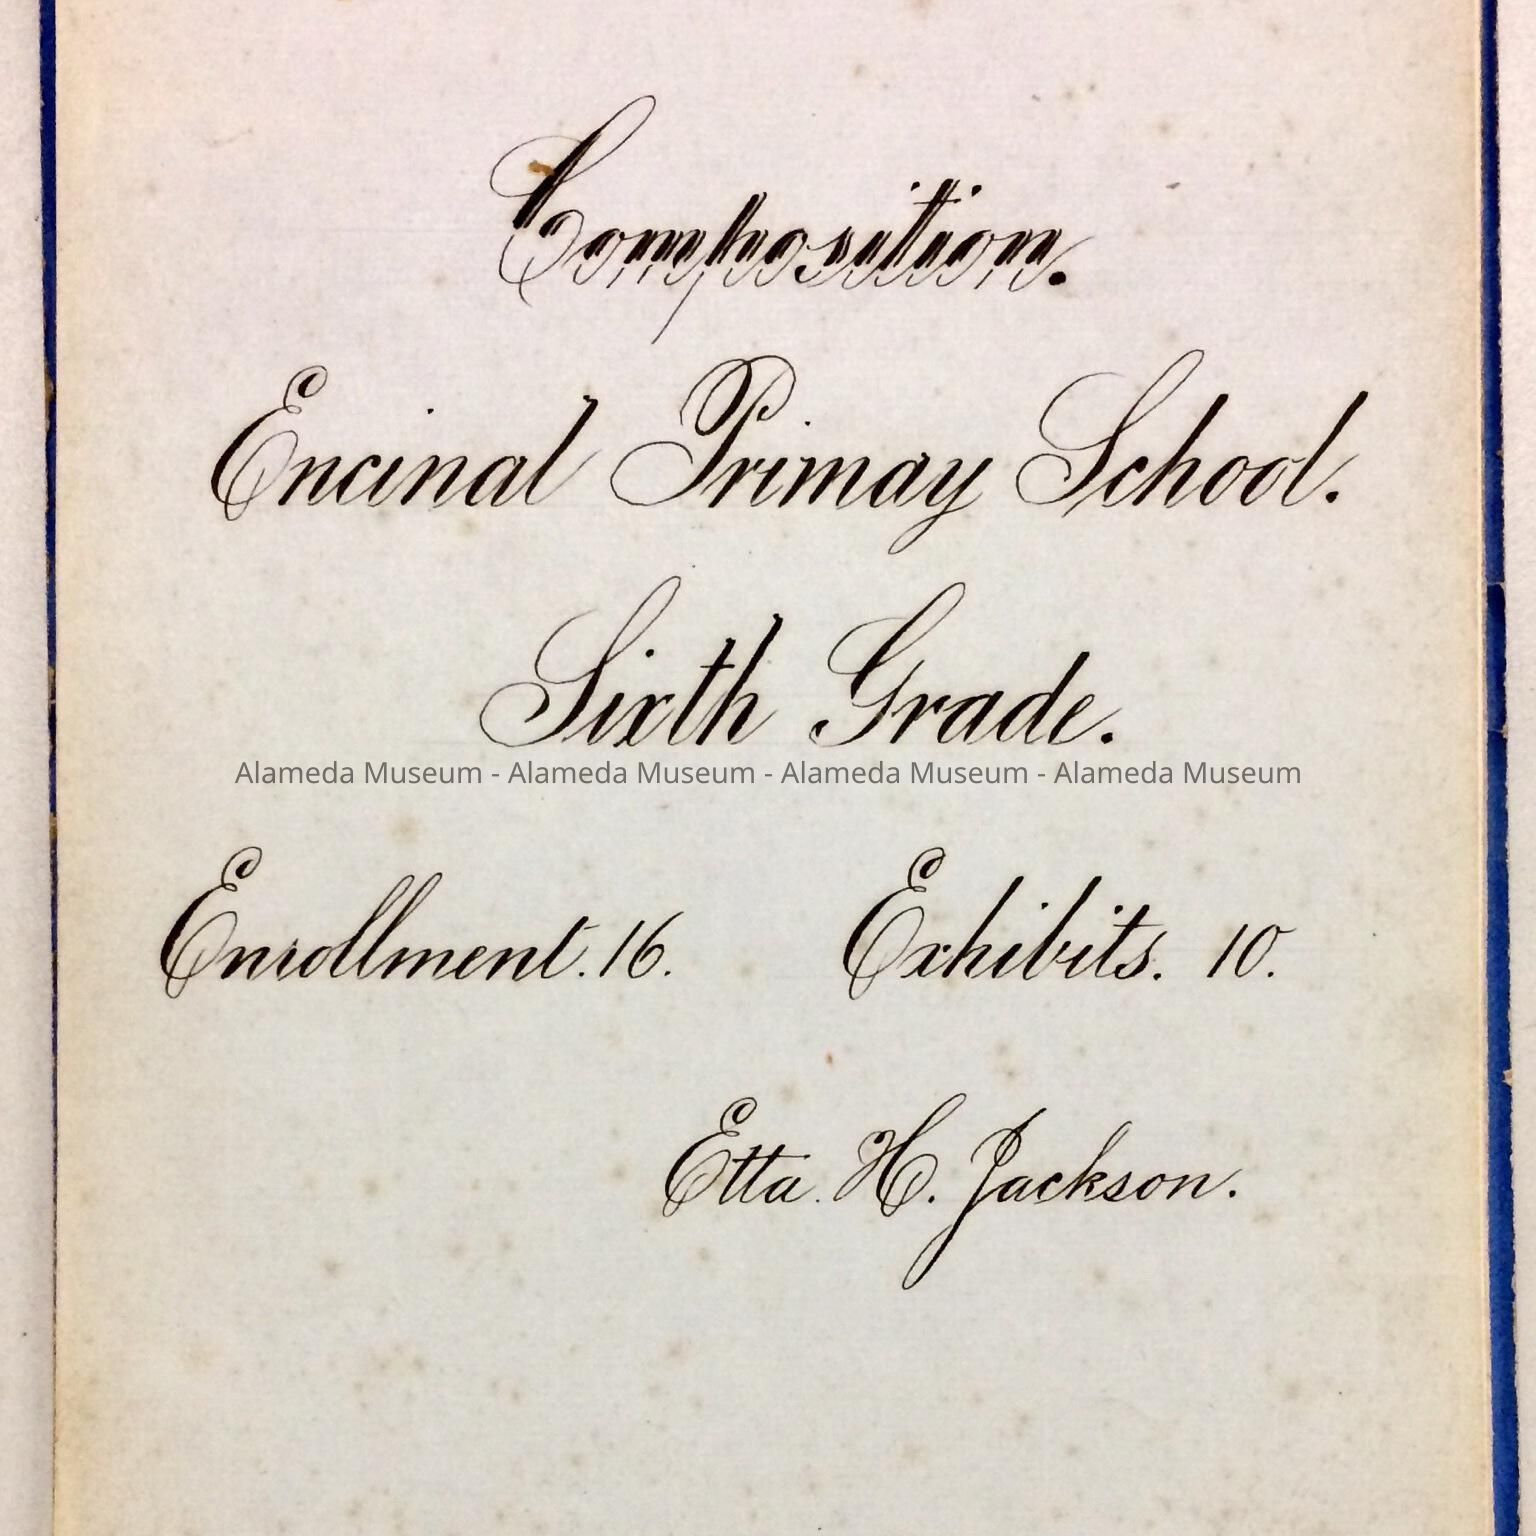 Composition.
Encinal Primay School.
Sixth Grade.
Alameda Museum - Alameda Museum - Alameda Museum - Alameda Museum
Enrollment. 16. Exhibits. 10.
Etta. H. Jackson.